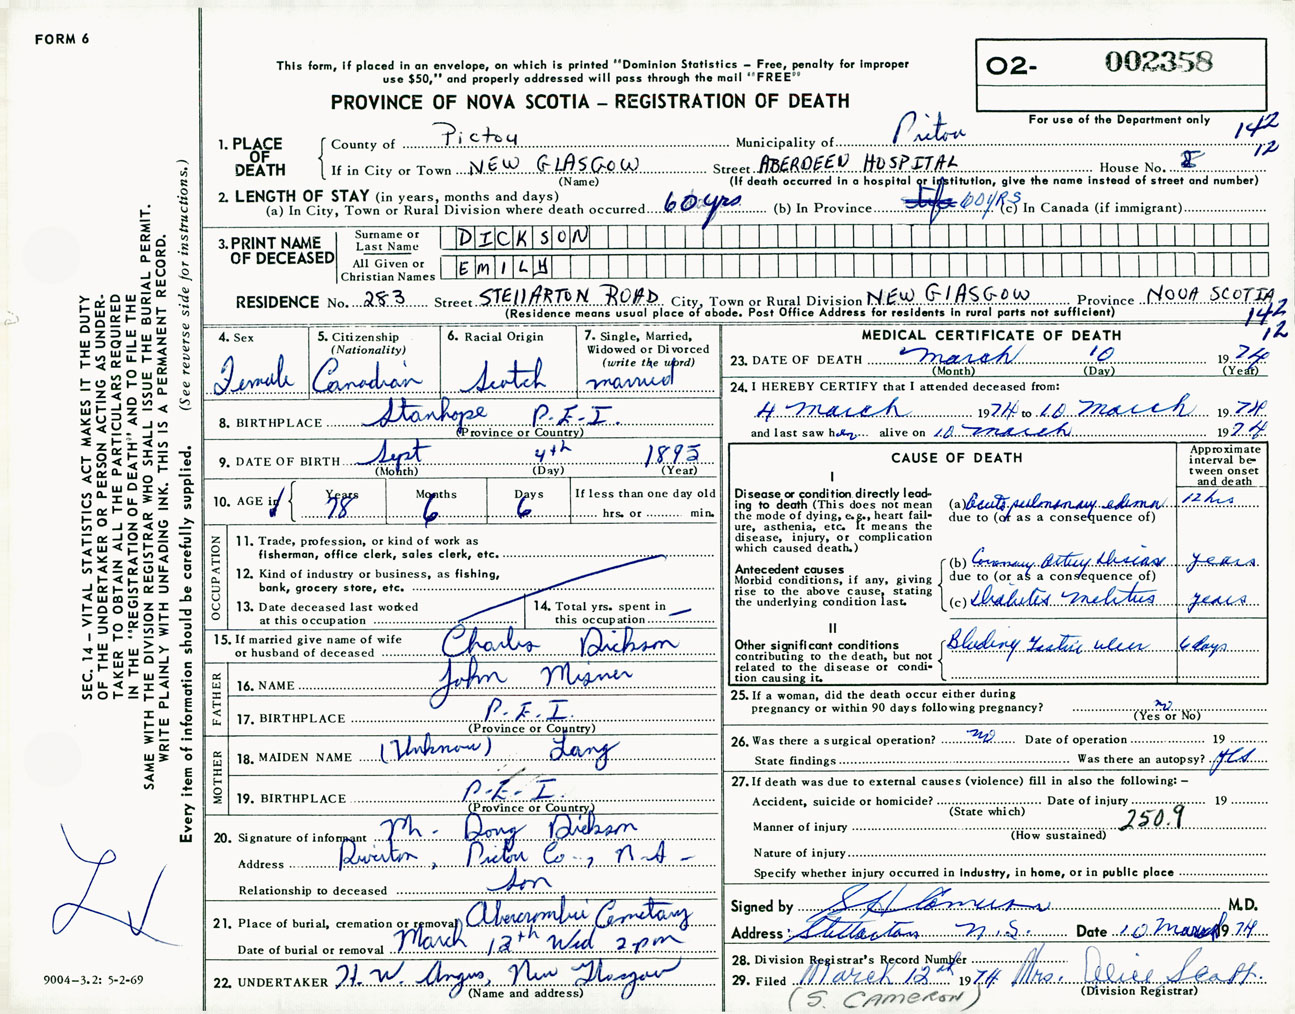 FORM 6
This form, if placed in an envelope, on which is printed "Dominion Statistics – Free, penalty for improper
use $50," and properly addressed will pass through the mail "FREE"
PROVINCE OF NOVA SCOTIA – REGISTRATION OF DEATH
O2- 002358
For use of the Department only
142
12
1. PLACE OF DEATH
County of Pictou Municipality of Pictou
If in City or Town NEW GLASGOW Street ABERDEEN HOSPITAL House No.
(Name) (If death occurred in a hospital or institution, give the name instead of street and number)
2. LENGTH OF STAY (in years, months and days)
(a) In City, Town or Rural Division where death occurred 60 yrs (b) In Province Life 60 YRS (c) In Canada (if immigrant)
3. PRINT NAME OF DECEASED
Surname or Last Name DICKSON
All Given or Christian Names EMILY
RESIDENCE No. 283 Street STELLARTON ROAD City, Town or Rural Division NEW GLASGOW Province NOVA SCOTIA
(Residence means usual place of abode. Post Office Address for residents in rural parts not sufficient)
142
12
4. Sex Female
5. Citizenship (Nationality) Canadian
6. Racial Origin Scotch
7. Single, Married, Widowed or Divorced (write the word) married
8. BIRTHPLACE Stanhope P.E.I.
(Province or Country)
9. DATE OF BIRTH Sept 4th 1895
(Month) (Day) (Year)
10. AGE in Years 78 Months 6 Days 6 If less than one day old
hrs. or min.
OCCUPATION
11. Trade, profession, or kind of work as
fisherman, office clerk, sales clerk, etc.
12. Kind of industry or business, as fishing,
bank, grocery store, etc.
13. Date deceased last worked
at this occupation
14. Total yrs. spent in
this occupation —
15. If married give name of wife
or husband of deceased Charles Dickson
FATHER
16. NAME John Misner
17. BIRTHPLACE P.E.I.
(Province or Country)
MOTHER
18. MAIDEN NAME (Unknow) Lang
19. BIRTHPLACE P.E.I.
(Province or Country)
20. Signature of informant Mr. Doug Dickson
Address Riverton, Pictou Co., N.S.
Relationship to deceased Son
21. Place of burial, cremation or removal Abercrombie Cemetary
Date of burial or removal March 13th Wed 2 pm
22. UNDERTAKER H. W. Angus, New Glasgow
(Name and address)
MEDICAL CERTIFICATE OF DEATH
23. DATE OF DEATH March 10 1974
(Month) (Day) (Year)
24. I HEREBY CERTIFY that I attended deceased from:
4 March 1974 to 10 March 1974
and last saw her alive on 10 March 1974
CAUSE OF DEATH
Approximate interval between onset and death
I
Disease or condition directly lead-
ing to death (This does not mean
the mode of dying, e.g., heart fail-
ure, asthenia, etc. It means the
disease, injury, or complication
which caused death.)
(a) Acute pulmonary edema 12 hrs
due to (or as a consequence of)
Antecedent causes
Morbid conditions, if any, giving
rise to the above cause, stating
the underlying condition last.
(b) Coronary Artery Disease years
due to (or as a consequence of)
(c) Diabetes Melitus years
II
Other significant conditions
contributing to the death, but not
related to the disease or condi-
tion causing it.
Bleeding Gastric ulcer 6 days
25. If a woman, did the death occur either during
pregnancy or within 90 days following pregnancy? no
(Yes or No)
26. Was there a surgical operation? no Date of operation 19
State findings Was there an autopsy? yes
27. If death was due to external causes (violence) fill in also the following: –
Accident, suicide or homicide? Date of injury 19
(State which)
Manner of injury 250.9
(How sustained)
Nature of injury
Specify whether injury occurred in industry, in home, or in public place
Signed by S H Cameron M.D.
Address: Stellarton N.S. Date 10 March 1974
28. Division Registrar's Record Number
29. Filed March 12th 1974 Mrs. Alice Scott.
(Division Registrar)
(S. CAMERON)
SEC. 14 – VITAL STATISTICS ACT MAKES IT THE DUTY
OF THE UNDERTAKER OR PERSON ACTING AS UNDER-
TAKER TO OBTAIN ALL THE PARTICULARS REQUIRED
IN THE "REGISTRATION OF DEATH" AND TO FILE THE
SAME WITH THE DIVISION REGISTRAR WHO SHALL ISSUE THE BURIAL PERMIT.
WRITE PLAINLY WITH UNFADING INK. THIS IS A PERMANENT RECORD.
Every item of information should be carefully supplied. (See reverse side for instructions.)
9004–3.2: 5-2-69